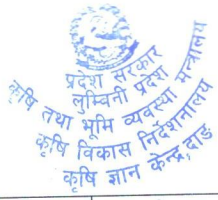 प्रदेश सरकार
लुम्बिनी प्रदेश
कृषि तथा भूमि व्यवस्था मन्त्रालय
कृषि विकास निर्देशनालय
कृषि ज्ञान केन्द्र, दाङ